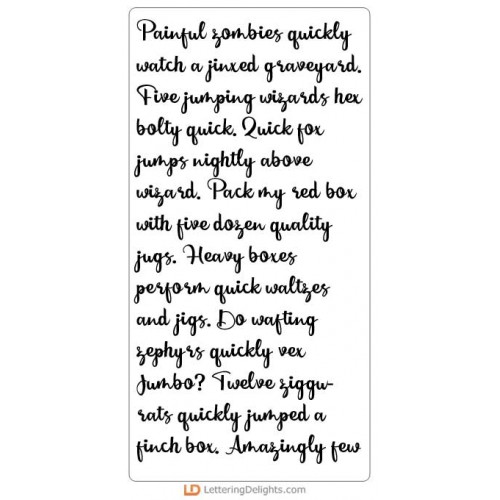 Painful zombies quickly
watch a jinxed graveyard.
Five jumping wizards hex
bolty quick. Quick fox
jumps nightly above
wizard. Pack my red box
with five dozen quality
jugs. Heavy boxes
perform quick waltzes
and jigs. Do wafting
zephyrs quickly vex
Jumbo? Twelve ziggu-
rats quickly jumped a
finch box. Amazingly few
LD LetteringDelights.com